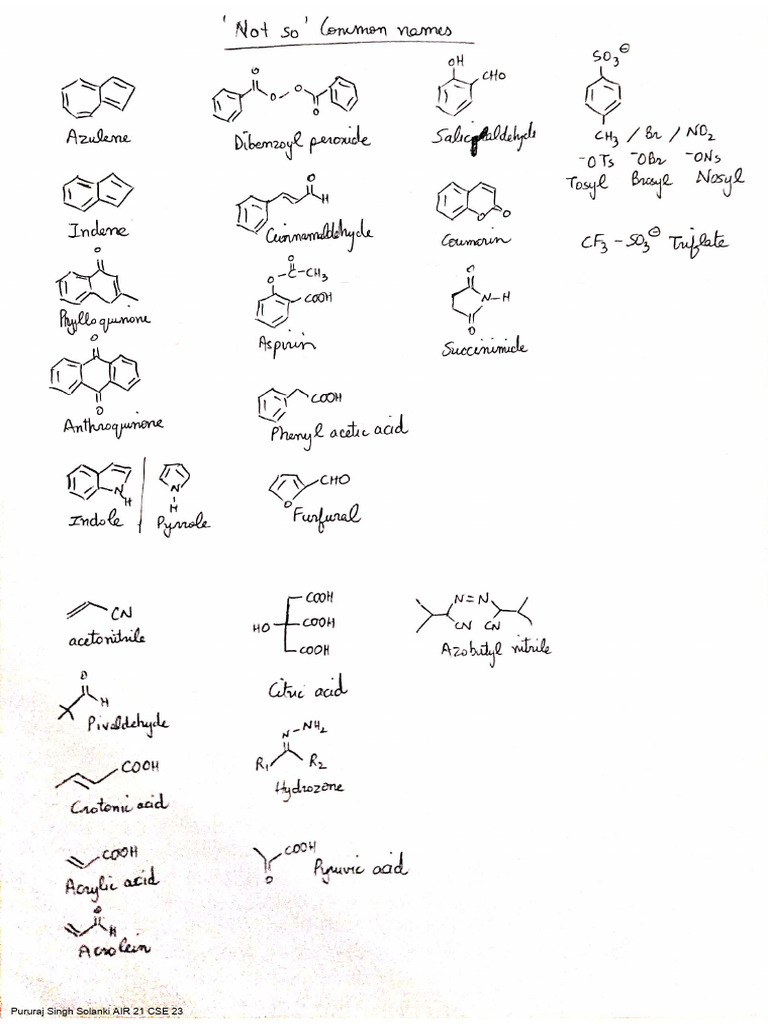 'Not so' Common names
Azulene
Dibenzoyl peroxide
OH
CHO
Salicylaldehyde
SO3⊖
CH3 / Br / NO2
⁻OTs ⁻OBr ⁻ONs
Tosyl Brosyl Nosyl
Indene
O
H
Cinnamaldehyde
O
O
Coumarin
CF3 – SO3⊖ Triflate
O
Phylloquinone
O
O–C–CH3
COOH
Aspirin
O
N–H
O
Succinimide
O
O
Anthroquinone
COOH
Phenyl acetic acid
N
H
Indole
N
H
Pyrrole
O
CHO
Furfural
CN
acetonitrile
COOH
HO COOH
COOH
Citric acid
N=N
CN CN
Azobutyl nitrile
O
H
Pivaldehyde
N–NH2
R1 R2
Hydrozone
COOH
Crotonic acid
COOH
Acrylic acid
COOH
O
Pyruvic acid
O
H
Acrolein
Pururaj Singh Solanki AIR 21 CSE 23